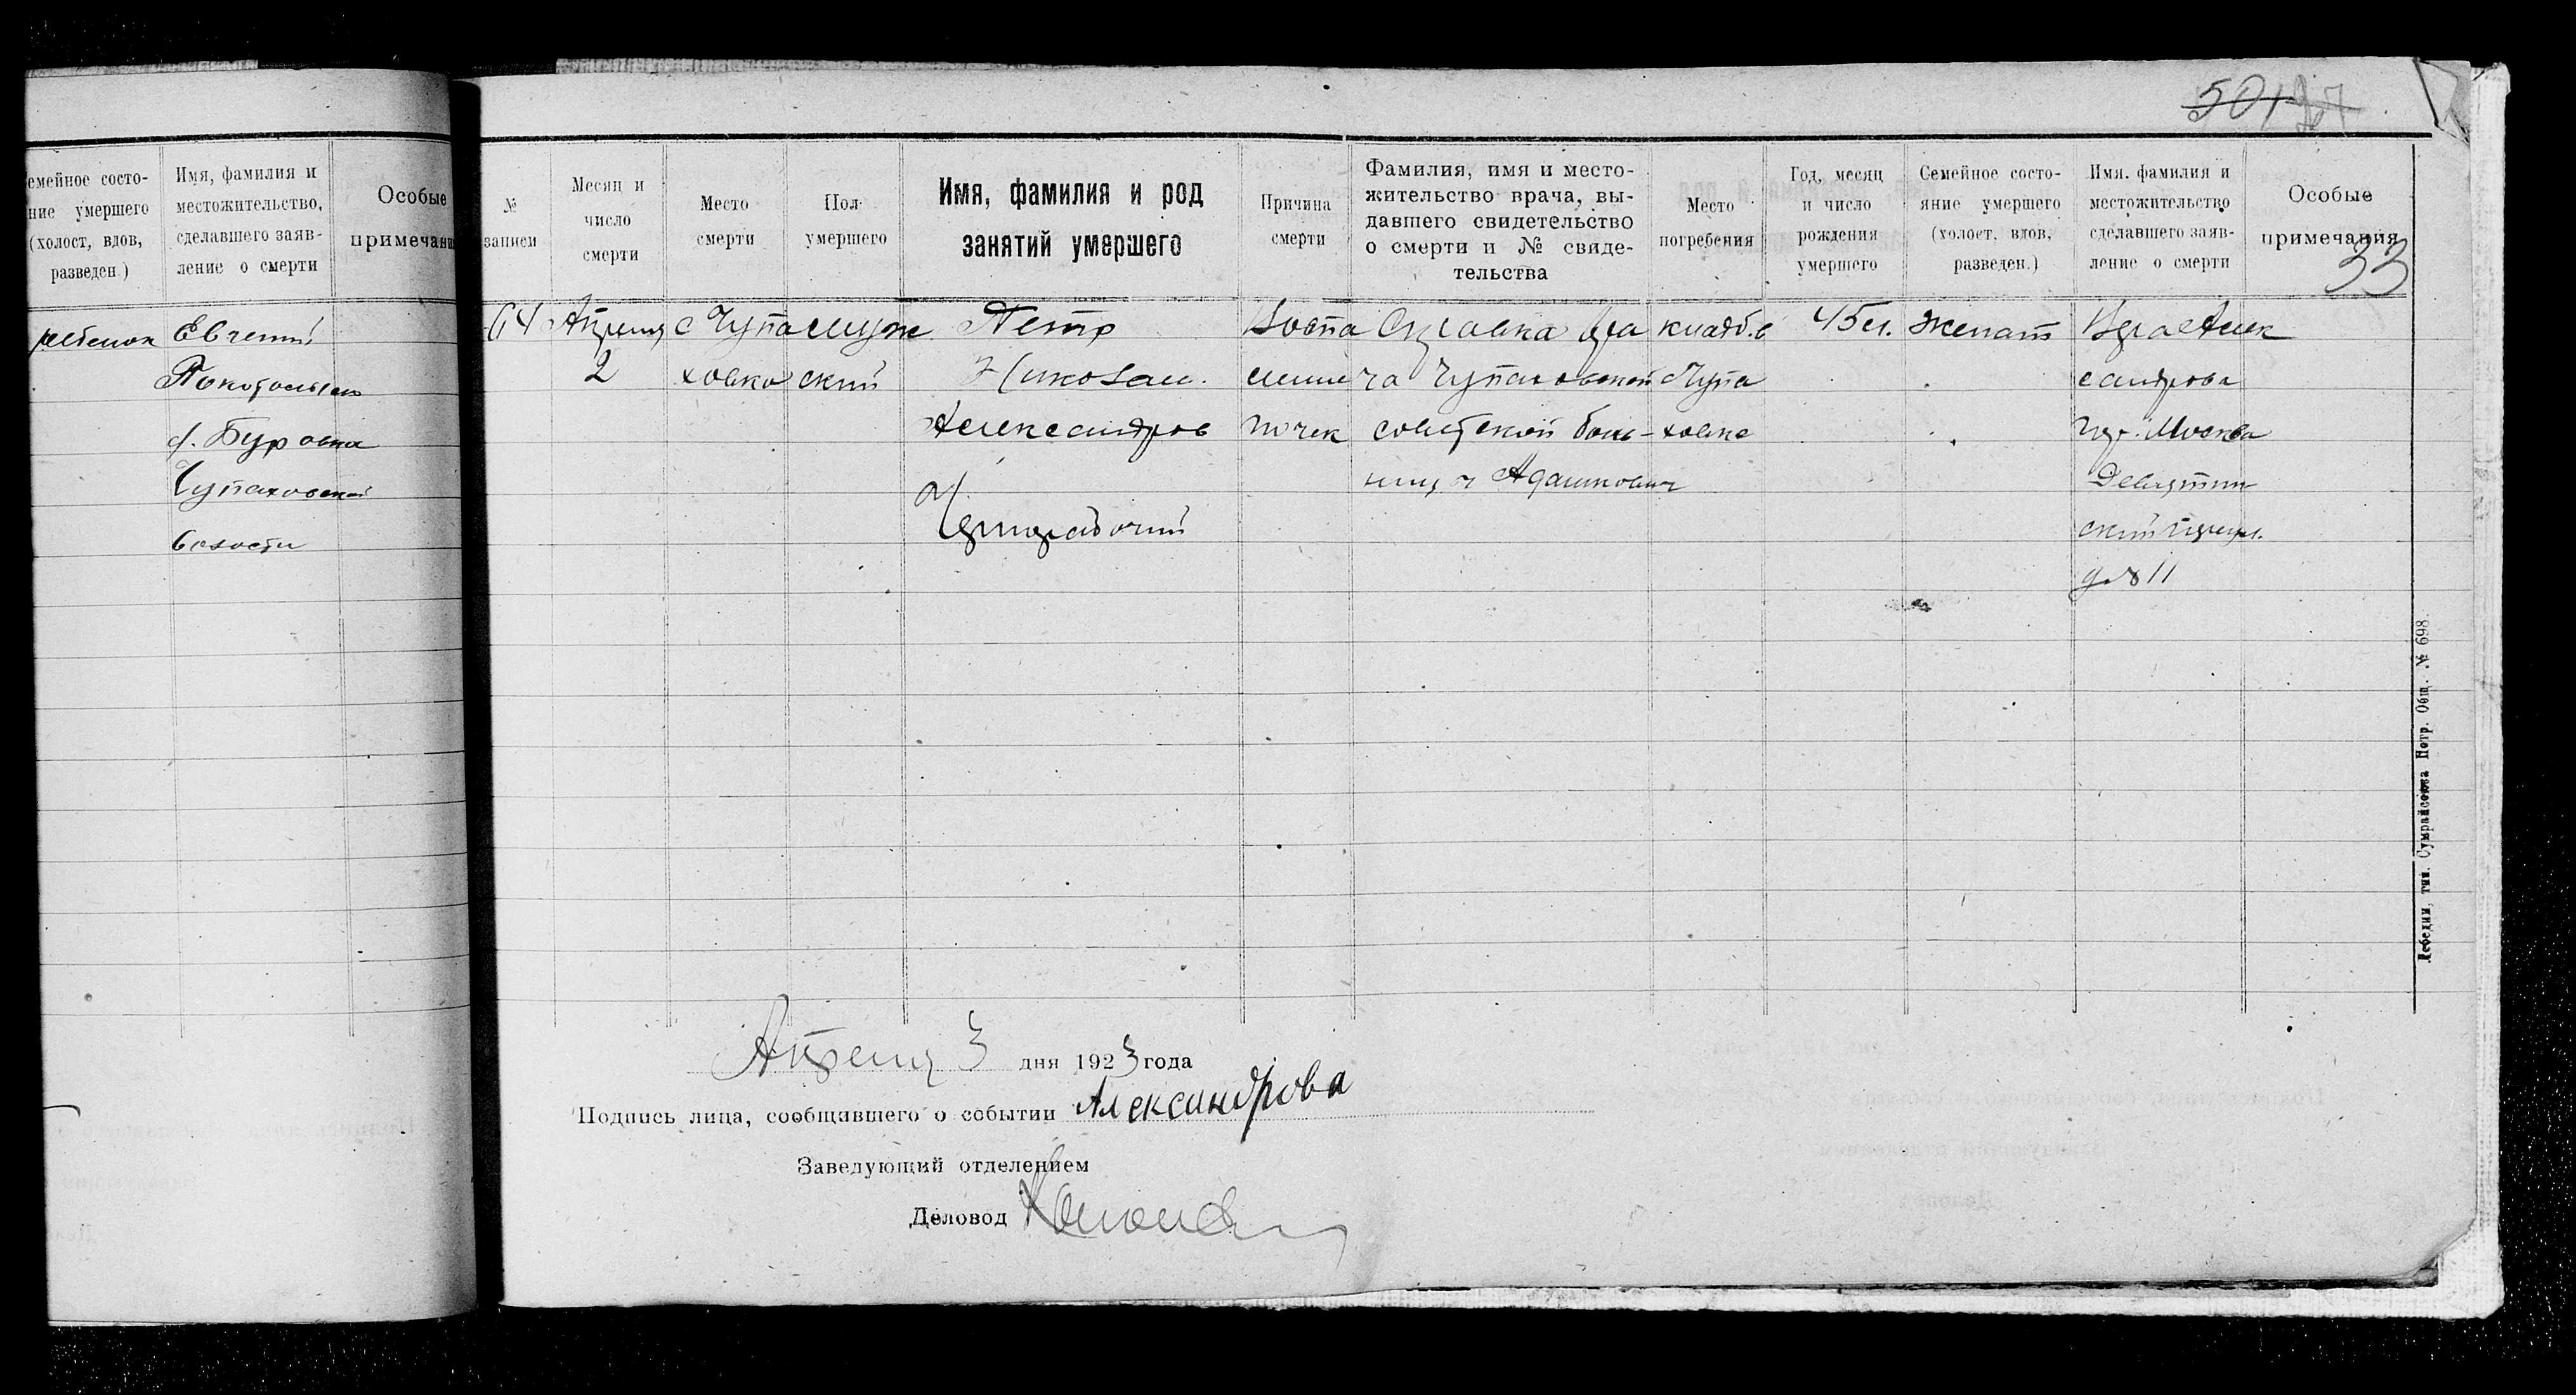 501
33
емейное состо-
ние умершего
(холост, вдов,
разведен.)
Имя, фамилия и
местожительство,
сделавшего заяв-
ление о смерти
Особые
примечани
ребенок
Евгений
х. Буровка
Чупаховской
волости
№
записи
Месяц и
число
смерти
Место
смерти
Пол
умершего
Имя, фамилия и род
занятий умершего
Причина
смерти
Фамилия, имя и место-
жительство врача, вы-
давшего свидетельство
о смерти и № свиде-
тельства
Место
погребения
Год, месяц
и число
рождения
умершего
Семейное состо-
яние умершего
(холост, вдов,
разведен.)
Имя, фамилия и
местожительство
сделавшего заяв-
ление о смерти
Особые
примечания
64
Апреля
2
с Чупа
ховка
муж
ский
Петр
Николаи.
Александров
Воспа
ление
почек
Справка вра
ча Чупаховской
советской боль-
ницы Адамкович
кладб. в
с Чупа
ховке
45 л.
женат
Вера Алек
сандрова
гор. Москва
Девятин
ский переул.
д. № 11
Апреля 3 дня 1923 года
Подпись лица, сообщившего о событии Александрова
Заведующий отделением
Деловод
Лебедин, тип. Сумрайсоюза Потр. Общ. № 698.